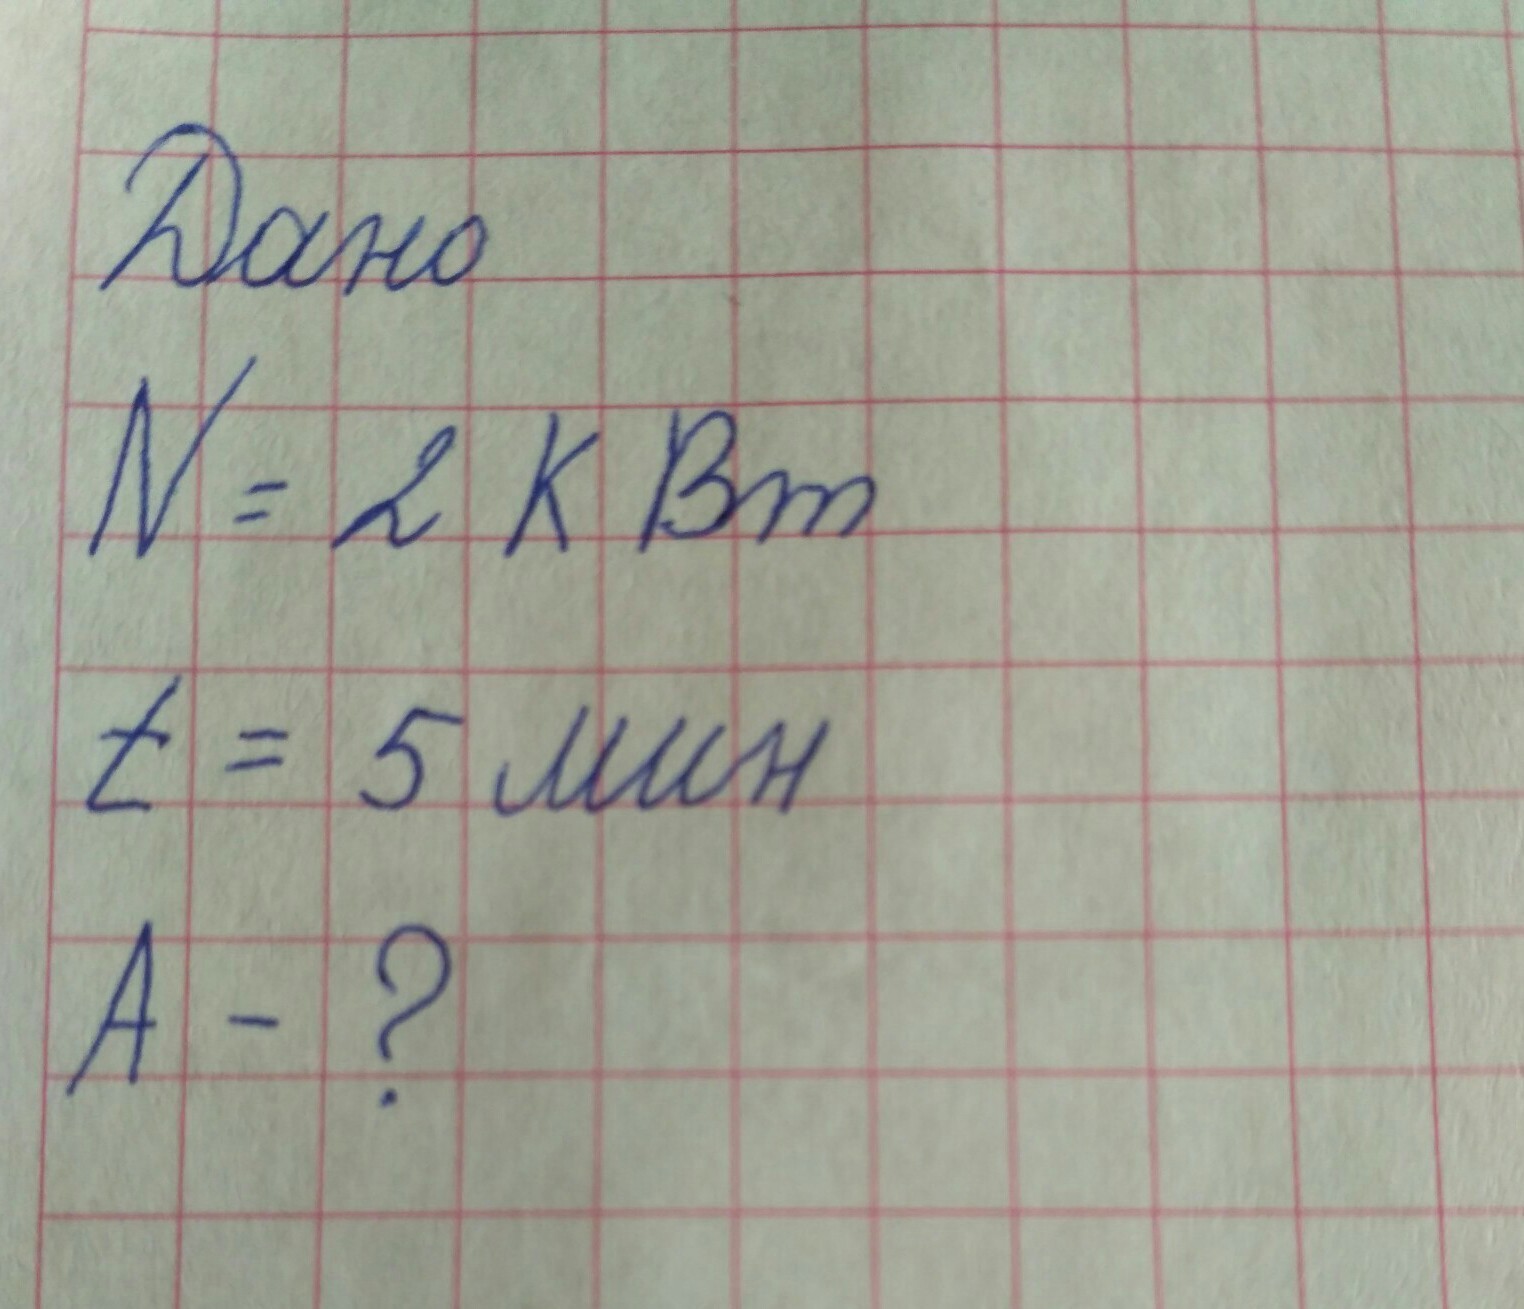 Дано
N = 2 кВт
t = 5 мин
A - ?